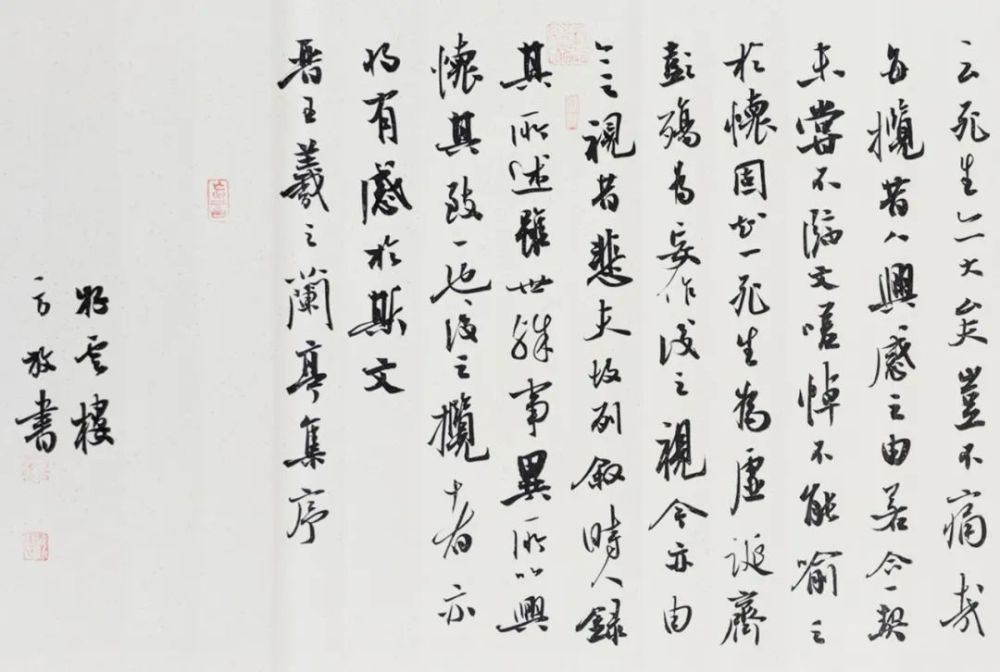 云死生亦大矣豈不痛哉
每攬昔人興感之由若合一契
未嘗不臨文嗟悼不能喻之
於懷固知一死生為虛誕齊
彭殤為妄作後之視今亦由
今之視昔悲夫故列敘時人錄
其所述雖世殊事異所以興
懷其致一也後之攬者亦
將有感於斯文
晉王羲之蘭亭集序
雲樓
方放書